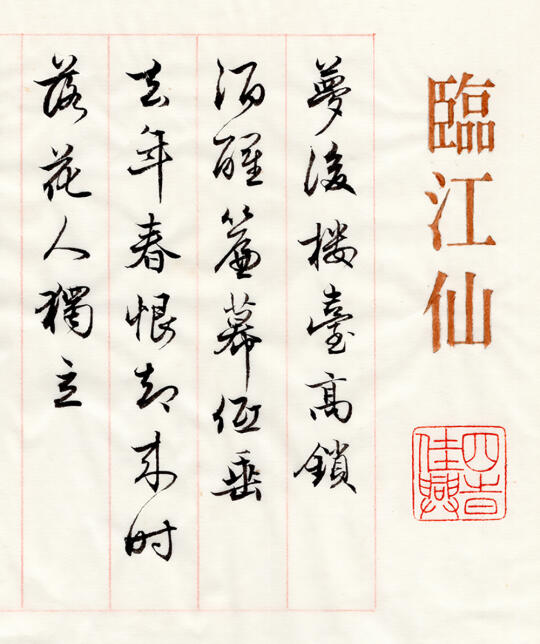 臨江仙
四旹佳興
夢後楼臺高鎖
酒醒簾幕低垂
去年春恨却来时
落花人獨立